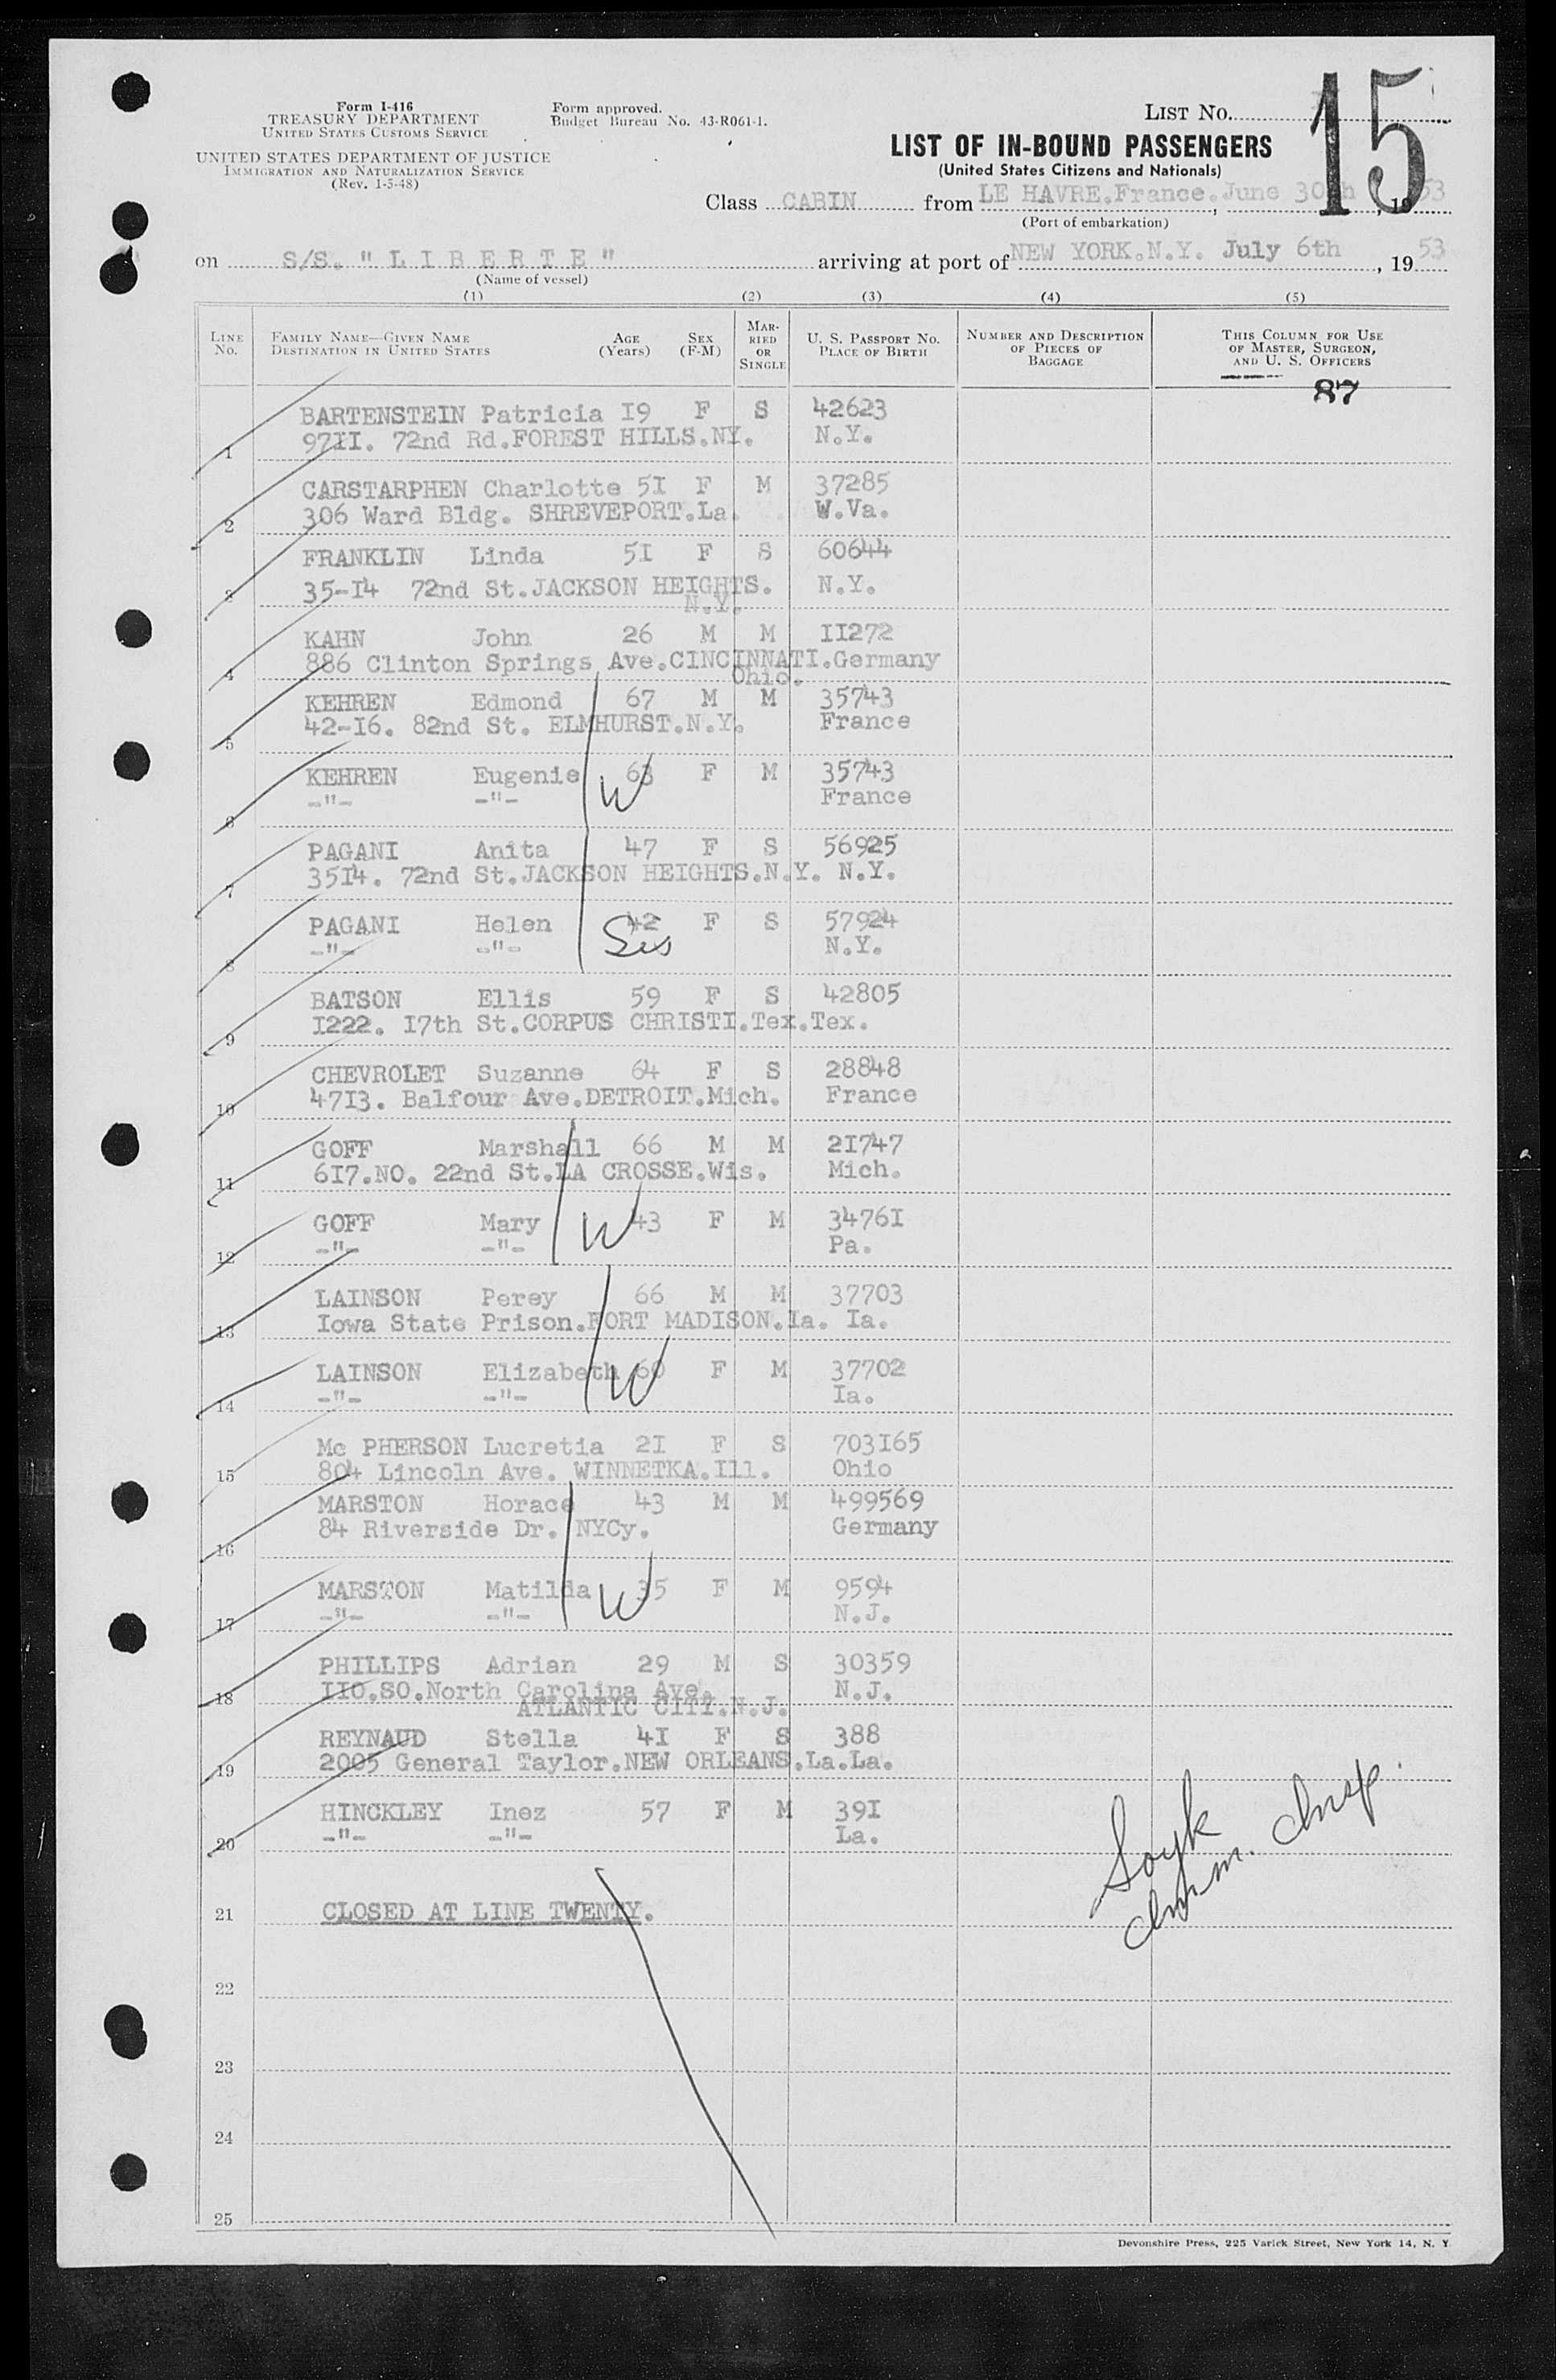 Form I-416
TREASURY DEPARTMENT
UNITED STATES CUSTOMS SERVICE
UNITED STATES DEPARTMENT OF JUSTICE
IMMIGRATION AND NATURALIZATION SERVICE
(Rev. 1-5-48)
Form approved.
Budget Bureau No. 43-R061-1.
LIST NO. 15
LIST OF IN-BOUND PASSENGERS
(United States Citizens and Nationals)
Class CABIN from LE HAVRE.France. June 30th, 1953
(Port of embarkation)
on S/S. " L I B E R T E " arriving at port of NEW YORK.N.Y. July 6th, 1953
(Name of vessel)
(1) (2) (3) (4) (5)
LINE No. FAMILY NAME—GIVEN NAME DESTINATION IN UNITED STATES AGE (Years) SEX (F-M) MARRIED OR SINGLE U. S. PASSPORT NO. PLACE OF BIRTH NUMBER AND DESCRIPTION OF PIECES OF BAGGAGE THIS COLUMN FOR USE OF MASTER, SURGEON, AND U. S. OFFICERS
87
BARTENSTEIN Patricia I9 F S 42623
1 97II. 72nd Rd.FOREST HILLS.NY. N.Y.
CARSTARPHEN Charlotte 5I F M 37285
2 306 Ward Bldg. SHREVEPORT.La. W.Va.
FRANKLIN Linda 5I F S 60644
3 35-I4 72nd St.JACKSON HEIGHTS. N.Y.
N.Y.
KAHN John 26 M M II272
4 886 Clinton Springs Ave.CINCINNATI.Germany
Ohio.
KEHREN Edmond 67 M M 35743
5 42-I6. 82nd St. ELMHURST.N.Y. France
KEHREN Eugenie W 63 F M 35743
6 -"- -"- France
PAGANI Anita 47 F S 56925
7 35I4. 72nd St.JACKSON HEIGHTS.N.Y. N.Y.
PAGANI Helen 42 F S 57924
8 -"- -"- Sis N.Y.
BATSON Ellis 59 F S 42805
9 I222. I7th St.CORPUS CHRISTI.Tex.Tex.
CHEVROLET Suzanne 64 F S 28848
10 47I3. Balfour Ave.DETROIT.Mich. France
GOFF Marshall 66 M M 2I747
11 6I7.NO. 22nd St.LA CROSSE.Wis. Mich.
GOFF Mary W 43 F M 3476I
12 -"- -"- Pa.
LAINSON Perey 66 M M 37703
13 Iowa State Prison.FORT MADISON.Ia. Ia.
LAINSON Elizabeth W 60 F M 37702
14 -"- -"- Ia.
Mc PHERSON Lucretia 2I F S 703I65
15 804 Lincoln Ave. WINNETKA.Ill. Ohio
MARSTON Horace 43 M M 499569
16 84 Riverside Dr. NYCy. Germany
MARSTON Matilda W 35 F M 9594
17 -"- -"- N.J.
PHILLIPS Adrian 29 M S 30359
18 II0.SO.North Carolina Ave. N.J.
ATLANTIC CITY.N.J.
REYNAUD Stella 4I F S 388
19 2005 General Taylor.NEW ORLEANS.La.La.
HINCKLEY Inez 57 F M 39I
20 -"- -"- La.
Soyk
Imm. Insp.
21 CLOSED AT LINE TWENTY.
22
23
24
25
Devonshire Press, 225 Varick Street, New York 14, N. Y.